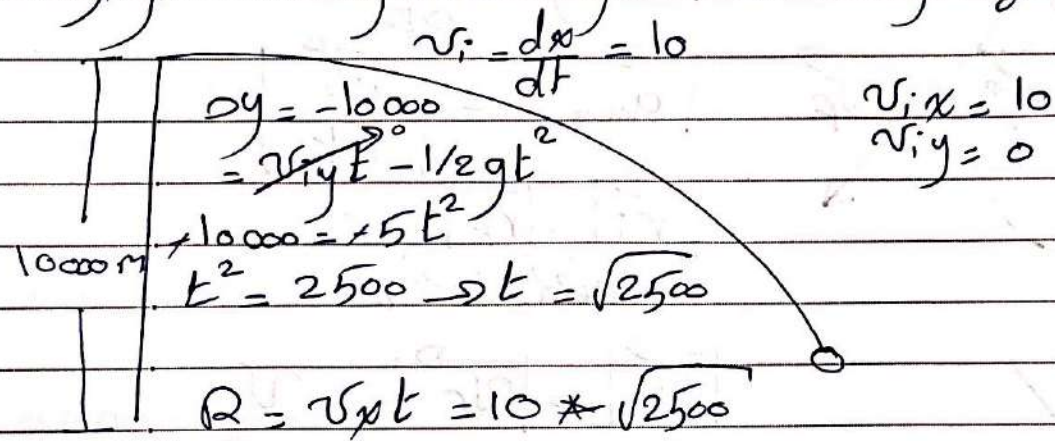 Vi = dx/dt = 10
Dy = -10000
Vix = 10
= Viyt⁰ - 1/2gt²
Viy = 0
+10000 = +5t²
10000m
t² = 2500 → t = √2500
R = Vxt = 10 * √2500